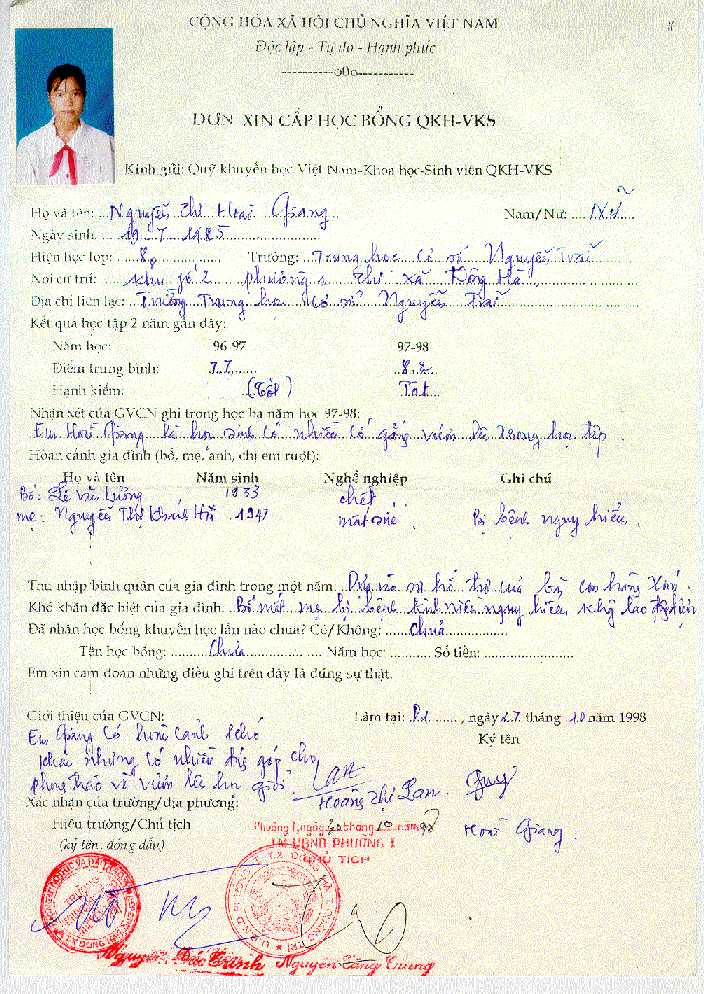 CỘNG HÒA XÃ HỘI CHỦ NGHĨA VIỆT NAM
Độc lập - Tự do - Hạnh phúc
----------o0o-----------
ĐƠN XIN CẤP HỌC BỔNG QKH-VKS
Kính gửi: Quỹ khuyến học Việt Nam-Khoa học-Sinh viên QKH-VKS
Họ và tên: Nguyễn Thị Hoài Giang Nam/Nữ: Nữ
Ngày sinh: 19.7.1985
Hiện học lớp: 8 Trường: Trung học Cơ sở Nguyễn Trãi
Nơi cư trú: khu phố 2 phường 1 thị xã Đông Hà
Địa chỉ liên lạc: Trường Trung học cơ sở Nguyễn Trãi
Kết quả học tập 2 năm gần đây:
Năm học: 96-97 97-98
Điểm trung bình: 7.7 8.2
Hạnh kiểm: (Tốt) Tốt
Nhận xét của GVCN ghi trong học bạ năm học 97-98:
Em Hoài Giang là học sinh có nhiều cố gắng vươn lên trong học tập.
Hoàn cảnh gia đình (bố, mẹ, anh, chị em ruột):
Họ và tên Năm sinh Nghề nghiệp Ghi chú
Bố: Lê Văn Lương 1933 chết
mẹ: Nguyễn Thị Khánh Hà 1947 mất sức Bị bệnh nguy hiểm.
Thu nhập bình quân của gia đình trong một năm: Dựa vào sự hỗ trợ của bà con hàng xóm.
Khó khăn đặc biệt của gia đình: Bố mất mẹ bị bệnh nguy hiểm lao
Đã nhận học bổng khuyến học lần nào chưa? Có/Không: Chưa
Tên học bổng: Chưa Năm học: Số tiền:
Em xin cam đoan những điều ghi trên đây là đúng sự thật.
Giới thiệu của GVCN: Làm tại: , ngày 27 tháng 10 năm 1998
Em Giang có hoàn cảnh khó Ký tên
khăn nhưng có nhiều đóng góp cho
phong trào và vươn lên học giỏi.
Hoàng Thị Lan
Xác nhận của trường/địa phương:
Hiệu trưởng/Chủ tịch Phường I, ngày tháng 10 năm 98 Hoài Giang
(ký tên, đóng dấu) TM UBND PHƯỜNG I
CHỦ TỊCH
Nguyễn Đức Trinh Nguyễn Trung